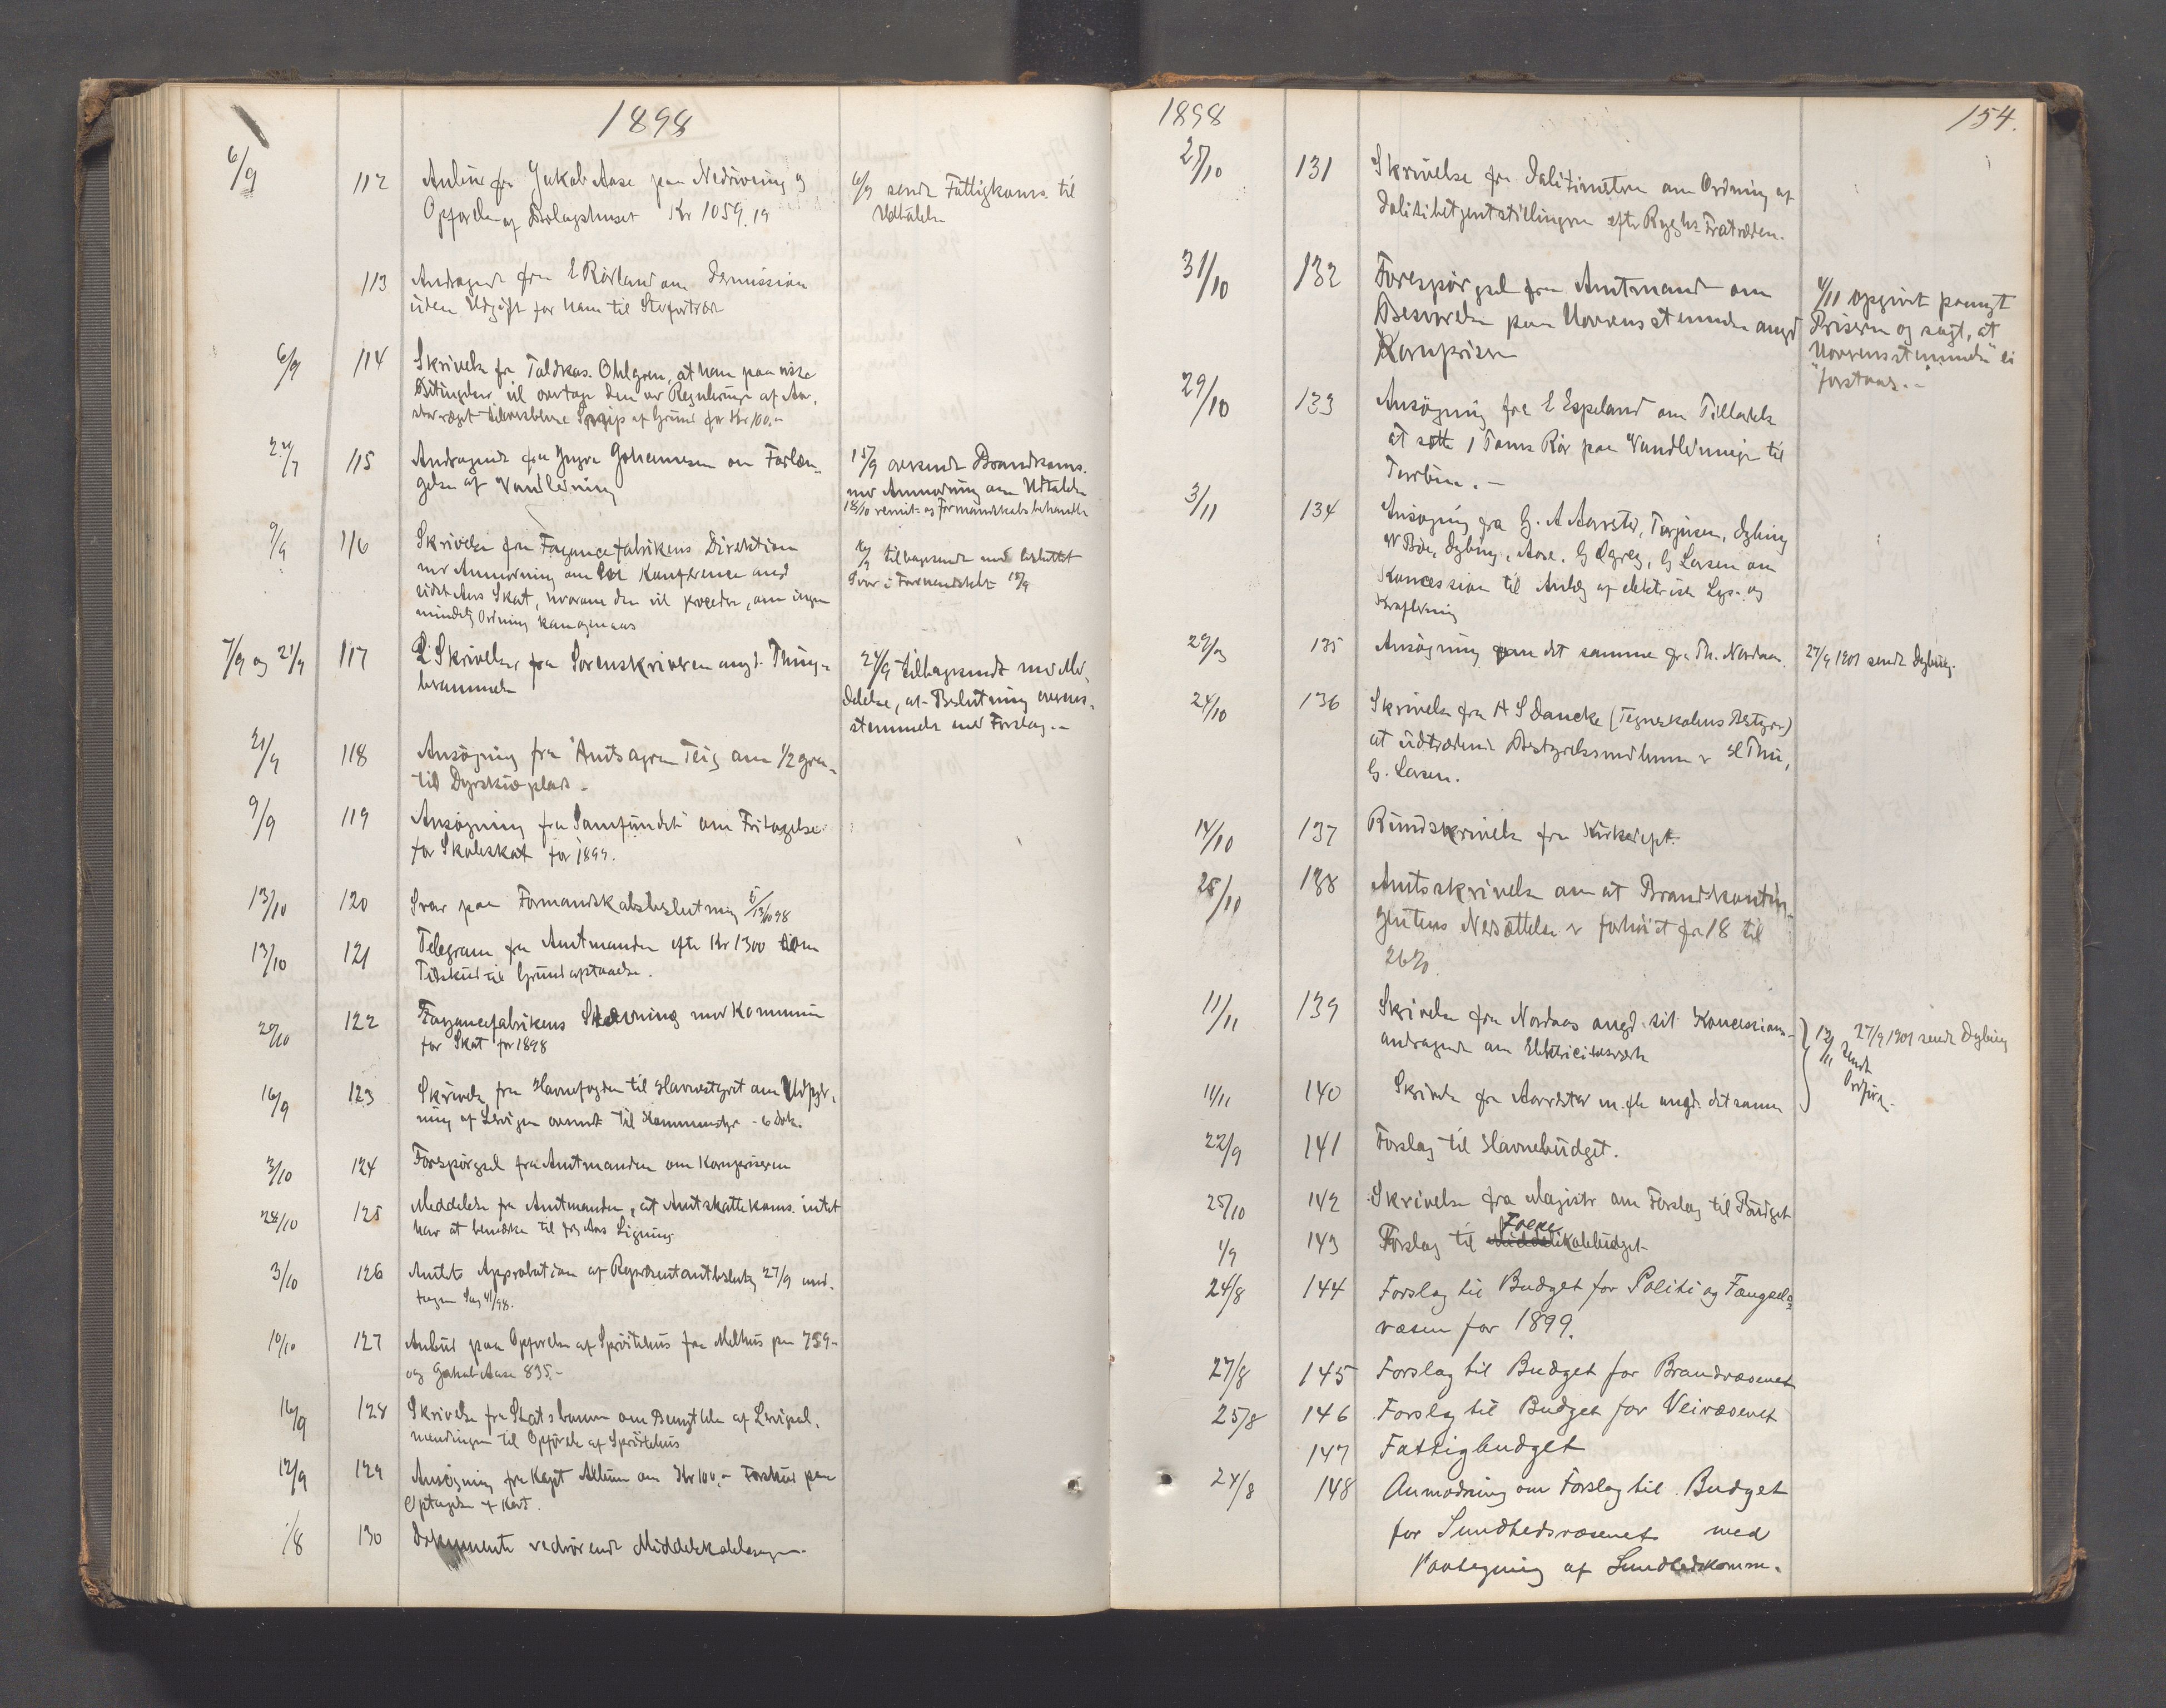 1898
6/9 112 Anbud fra Jakob Aase paa Nedrivning og 6/9 sendt Fattigkoms. til
Opførelse af Bolagshuset Kr 1059.19 Udtalelse
113 Andragende fra E Rørland om Dermission
uden Udgift for ham til Stedfortræder
6/9 114 Skrivelse fra Toldkas. Ohlgren, at han paa visse
Betingelser vil overtage den ved Regulering af
tiloversblevne af Grund for Kr 100.-
22/7 115 Andragende fra Johannesen om Forlæn- 15/9 oversendt Brandkoms.
gelse af Vandledning med Anmodning om Udtalelse
18/10 remit. og Formandskabsbehandlet
9/9 116 Skrivelse fra Fayancefabrikens Direktion tilbagesendt med besluttet
med Anmodning om Konference angd Svar i Formandskabet 15/9
sidste Aars Skat, hvorom den vil procedere, om ingen
mindelig Ordning kan opnaaes
7/9 og 21/9 117 2 Skrivelser fra Sorenskriveren angd. Thing- 24/9 tilbagesendt med Med-
berammelse delelse, at Beslutning overens-
stemmende med Forslag.-
21/9 118 Ansøgning fra Amtsagron Teig om 1/2
til Dyrskueplads -
9/9 119 Ansøgning fra "Samfundet" om Fritagelse
for Skoleskat for 1899.
13/10 120 Svar paa Formandskabsbeslutning 5/13/10 98
13/10 121 Telegram fra Amtmanden efter Kr 1300 som
Tilskud til Grundoptagelse.
20/10 122 Fayancefabrikens Stævning mod Kommunen
for Skat for 1898
16/9 123 Skrivelse fra Havnefogden til Havnestyret om Udpyd-
ning af oversendt til Kommunestyr - 6 Dok.
3/10 124 Forespørgsel fra Amtmanden om Kornpriserne
24/10 125 Meddelelse fra Amtmanden, at Amtskattekoms. intet
har at bemærke til Aars Ligning
3/10 126 Amtets Approbation af Repræsentantbeslutn 27/9 und-
tagen Sag 41/98.
10/10 127 Anbud paa Opførelse af Sprøitehus fra Melhus paa 759.-
og Jakob Aase 835.-
16/9 128 Skrivelse fra Statsbanen om Benyttelse af
til Opførelse af Sprøitehus
12/9 129 Ansøgning fra Kapt om Kr 100.- Forskud paa
Optagelse af Kart.
1/8 130 Dokumenter vedrørende Middelskolesagen.
1898 154.
25/10 131 Skrivelse fra Politimesteren om Ordning af
Politibetjentstillingen efter Fratræden.
31/10 132 Forespørgsel fra Amtmand om 4/11 opgivet paanyt
Besvarelse paa Uoverensstemmelse angd Priserne og sagt, at
Kornpriserne "Uoverensstemmelse" ei
"forstaaes.-
29/10 133 Ansøgning fra E Espeland om Tilladelse
at sætte 1 Toms Rør paa Vandledningen til
Turbine.-
3/11 134 Ansøgning fra G. A Aarrestad, Torjusen, Dybing
W Bøe, Dybing, Aase, G Øgrey, G Larsen om
Koncession til Anlæg af elektrisk Lys- og
Kraftledning
135 Ansøgning om det samme fra Th. Nordaas. 27/9 1901 sendt Dybing.
24/10 136 Skrivelse fra H S Dancke (Tegneskolens Bestyrer)
at udtrædende Bestyrelsesmedlemmer er
G. Larsen.
14/10 137 Rundskrivelse fra Kirkedept.
25/10 138 Amtsskrivelse om at Brandkontin-
gentens Nedsættelse er forhøiet fra 18 til
26%.
11/11 139 Skrivelse fra Nordaas angd. sit Koncessions- 27/9 1901 sendt Dybing
andragende om Elektricitetsværk 12/11 sendt Ordføren.
11/11 140 Skrivelse fra Aarrestad m. fl. angd. det samme
22/9 141 Forslag til Havnebudget.
25/10 142 Skrivelse fra Magistr om Forslag til Budget
1/9 143 Forslag til Folkeskolebudget
24/8 144 Forslag til Budget for Politi og Fængsels-
væsen for 1899.
27/8 145 Forslag til Budget for Brandvæsenet
25/8 146 Forslag til Budget for Veivæsenet
147 Fattigbudget
24/8 148 Anmodning om Forslag til Budget
for Sundhedsvæsenet med
Paategning af Sundhedskomm.